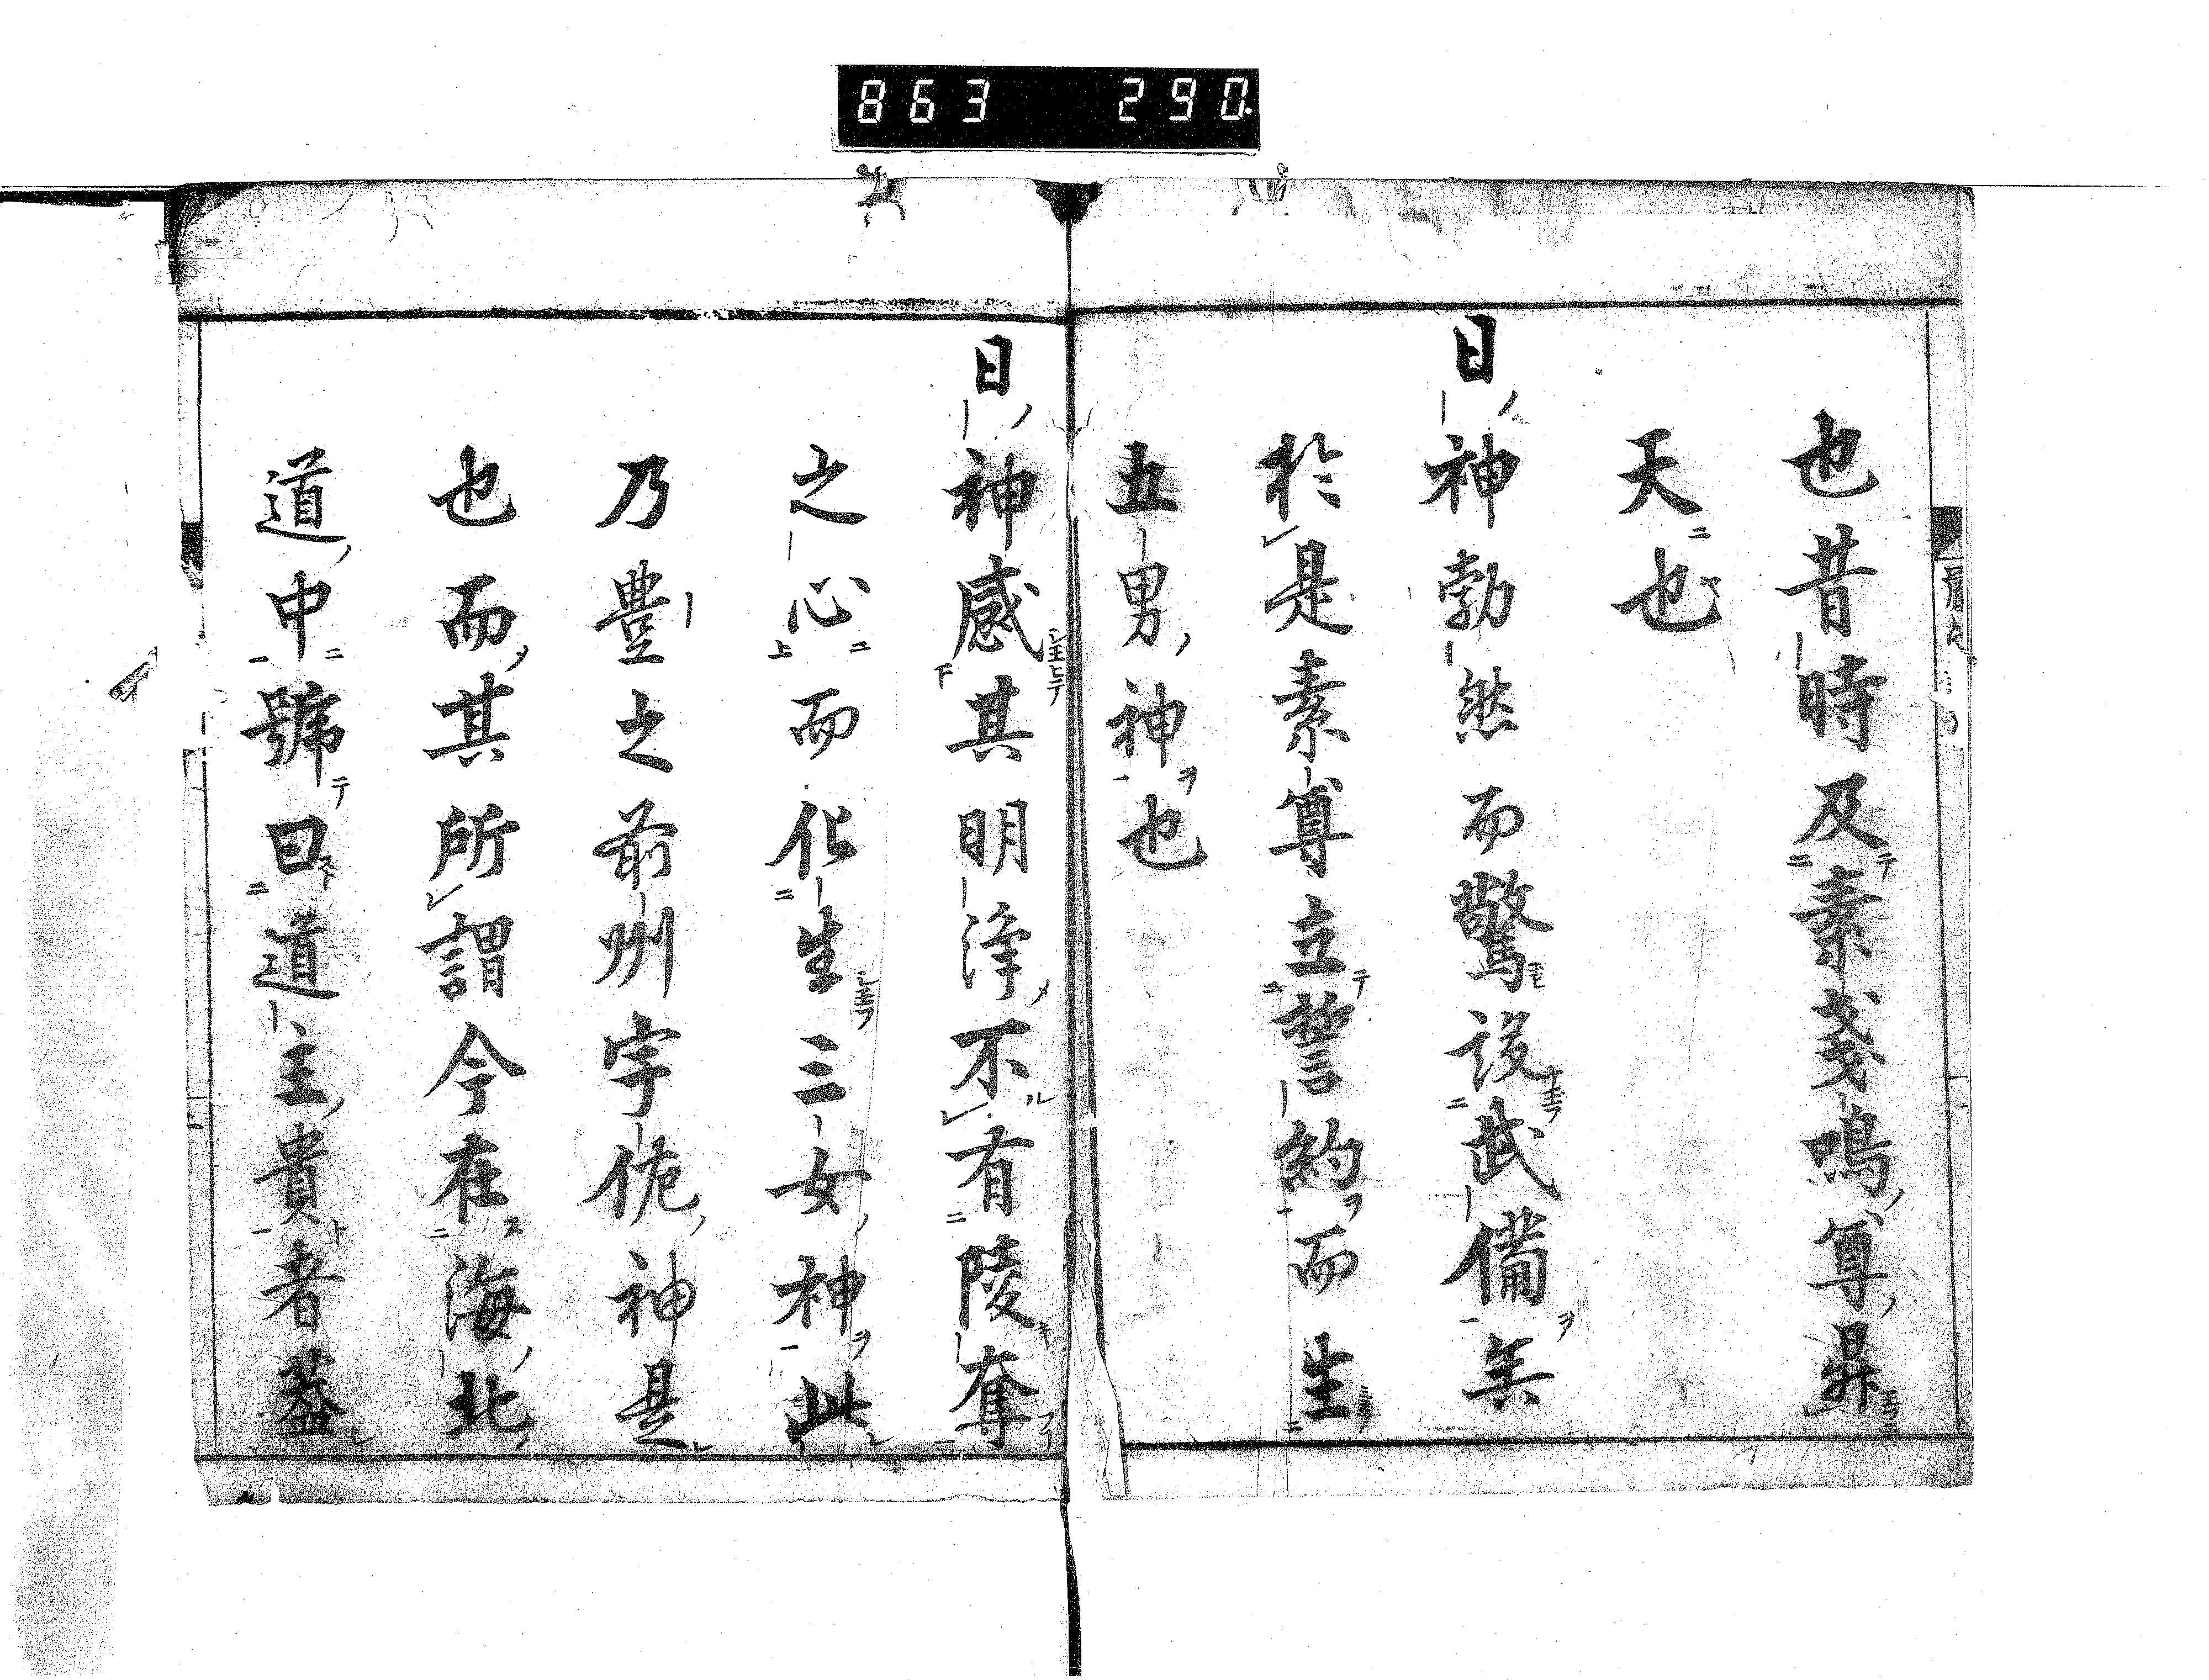 863 290
也昔時及素戔嗚尊昇
天也
日神勃然而驚設武備矣
於是素尊立誓約而生
五男神也
日神感其明淨不有陵奪
之心而化生三女神此
乃豊之前州宇佐神是
也而其所謂今在海北
道中號曰道主貴者蓋